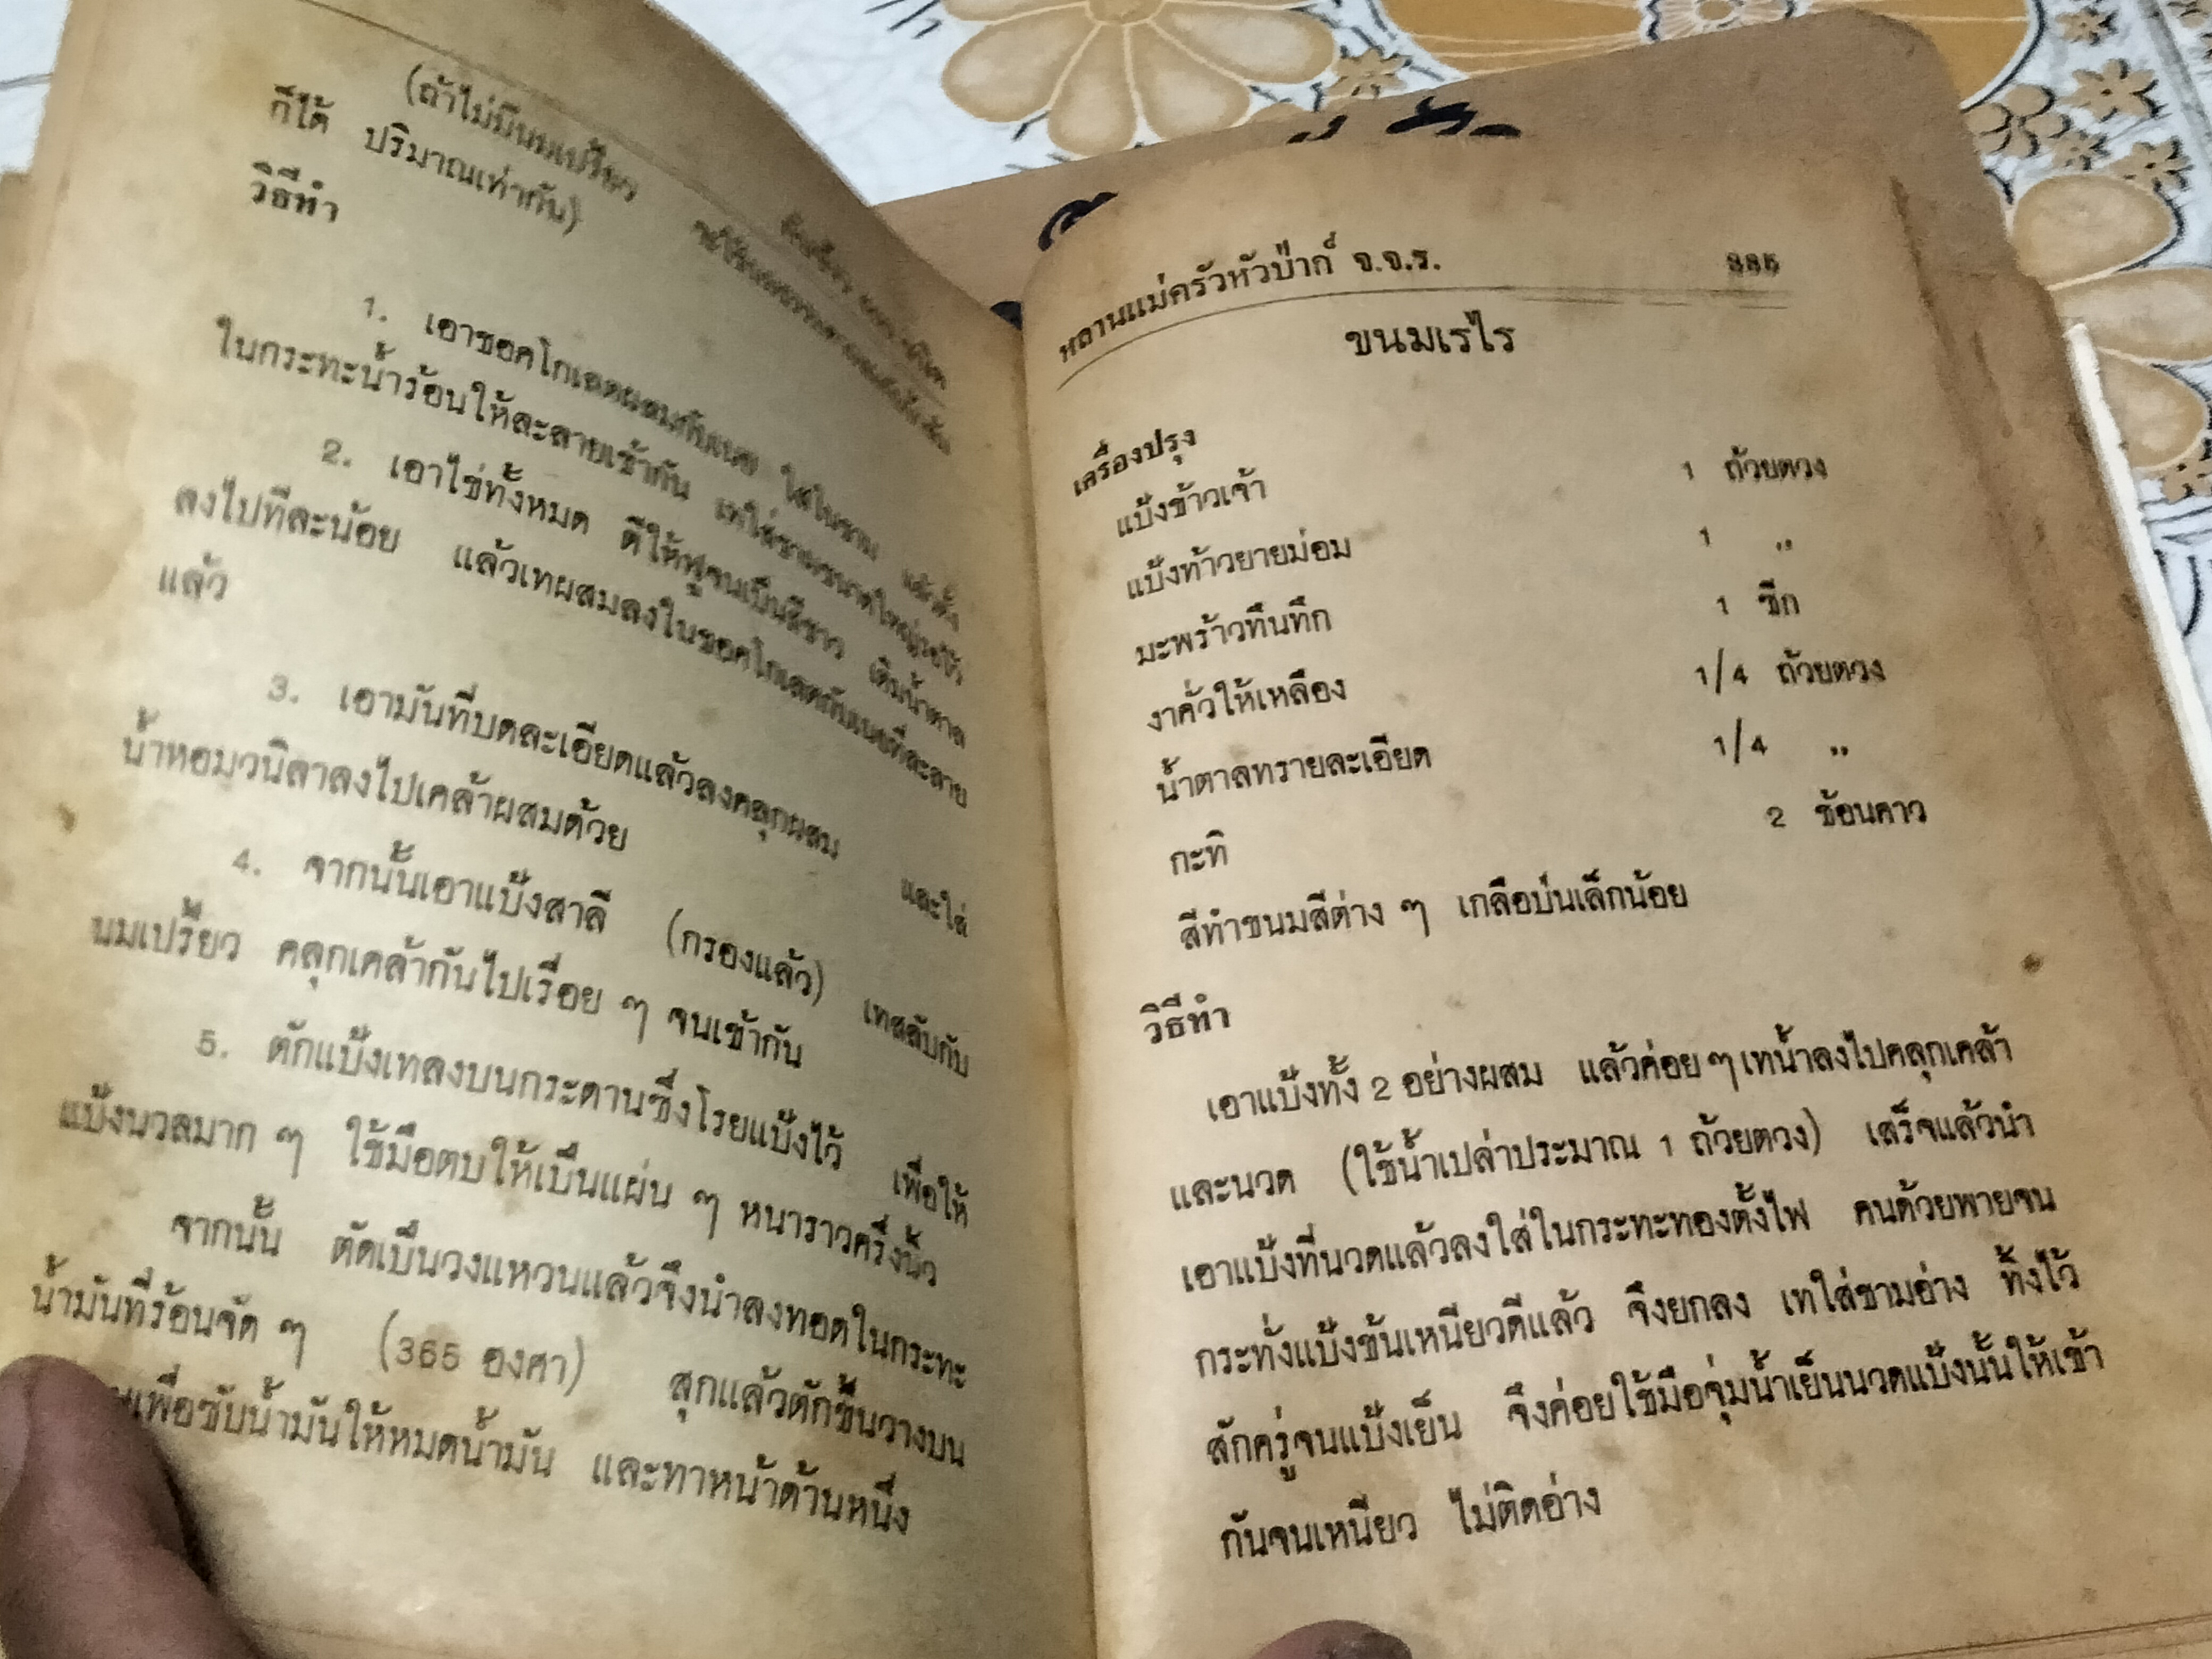 (ถ้าไม่มีนมเปรี้ยว
ก็ได้ ปริมาณเท่ากัน)
วิธีทำ
1. เอาชอคโกเลตผสมกับเนย ใส่ในชาม แล้วตั้ง
ในกระทะน้ำร้อนให้ละลายเข้ากัน เทใส่ชามขนาดใหญ่
2. เอาไข่ทั้งหมด ตีให้ฟูจนเป็นสีขาว เติมน้ำตาล
ลงไปทีละน้อย แล้วเทผสมลงในชอคโกเลตกับเนยที่ละลาย
แล้ว
3. เอามันที่บดละเอียดแล้วลงคลุกผสม และใส่
น้ำหอมวนิลาลงไปเคล้าผสมด้วย
4. จากนั้นเอาแป้งสาลี (กรองแล้ว) เทสลับกับ
นมเปรี้ยว คลุกเคล้ากันไปเรื่อย ๆ จนเข้ากัน
5. ตักแป้งเทลงบนกระดานซึ่งโรยแป้งไว้ เพื่อให้
แป้งนวลมาก ๆ ใช้มือตบให้เป็นแผ่น ๆ หนาราวครึ่งนิ้ว
จากนั้น ตัดเป็นวงแหวนแล้วจึงนำลงทอดในกระทะ
น้ำมันที่ร้อนจัด ๆ (365 องศา) สุกแล้วตักขึ้นวางบน
เพื่อซับน้ำมันให้หมดน้ำมัน และทาหน้าด้านหนึ่ง
หลานแม่ครัวหัวป่าก์ จ.จ.ร. 385
ขนมเรไร
เครื่องปรุง
แป้งข้าวเจ้า 1 ถ้วยตวง
แป้งท้าวยายม่อม 1 ,,
มะพร้าวทึนทึก 1 ซีก
งาคั่วให้เหลือง 1/4 ถ้วยตวง
น้ำตาลทรายละเอียด 1/4 ,,
กะทิ 2 ช้อนคาว
สีทำขนมสีต่าง ๆ เกลือป่นเล็กน้อย
วิธีทำ
เอาแป้งทั้ง 2 อย่างผสม แล้วค่อย ๆ เทน้ำลงไปคลุกเคล้า
และนวด (ใช้น้ำเปล่าประมาณ 1 ถ้วยตวง) เสร็จแล้วนำ
เอาแป้งที่นวดแล้วลงใส่ในกระทะทองตั้งไฟ คนด้วยพายจน
กระทั่งแป้งข้นเหนียวดีแล้ว จึงยกลง เทใส่ชามอ่าง ทิ้งไว้
สักครู่จนแป้งเย็น จึงค่อยใช้มือจุ่มน้ำเย็นนวดแป้งนั้นให้เข้า
กันจนเหนียว ไม่ติดอ่าง